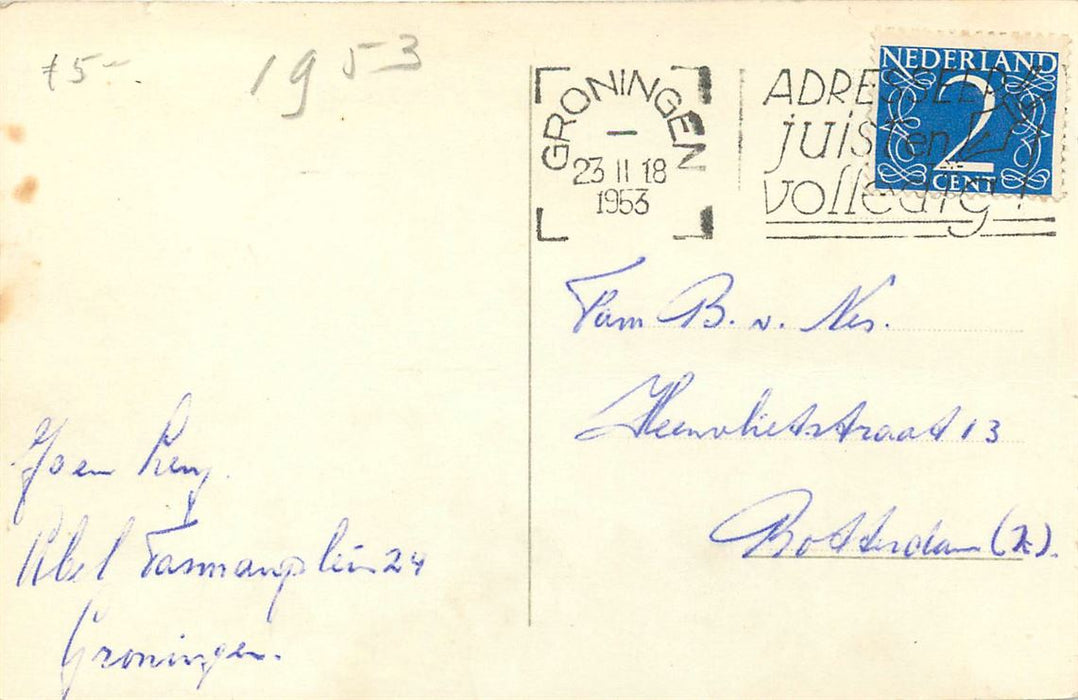 75-.
1953
GRONINGEN
23 II 18
1953
ADRESSEER
juist en
volledig!
NEDERLAND
2
CENT
Fam B. v. Nes.
Heenvlietstraat 13
Rotterdam (Z).
Jo en
Abel Tasmanplein 24
Groningen.